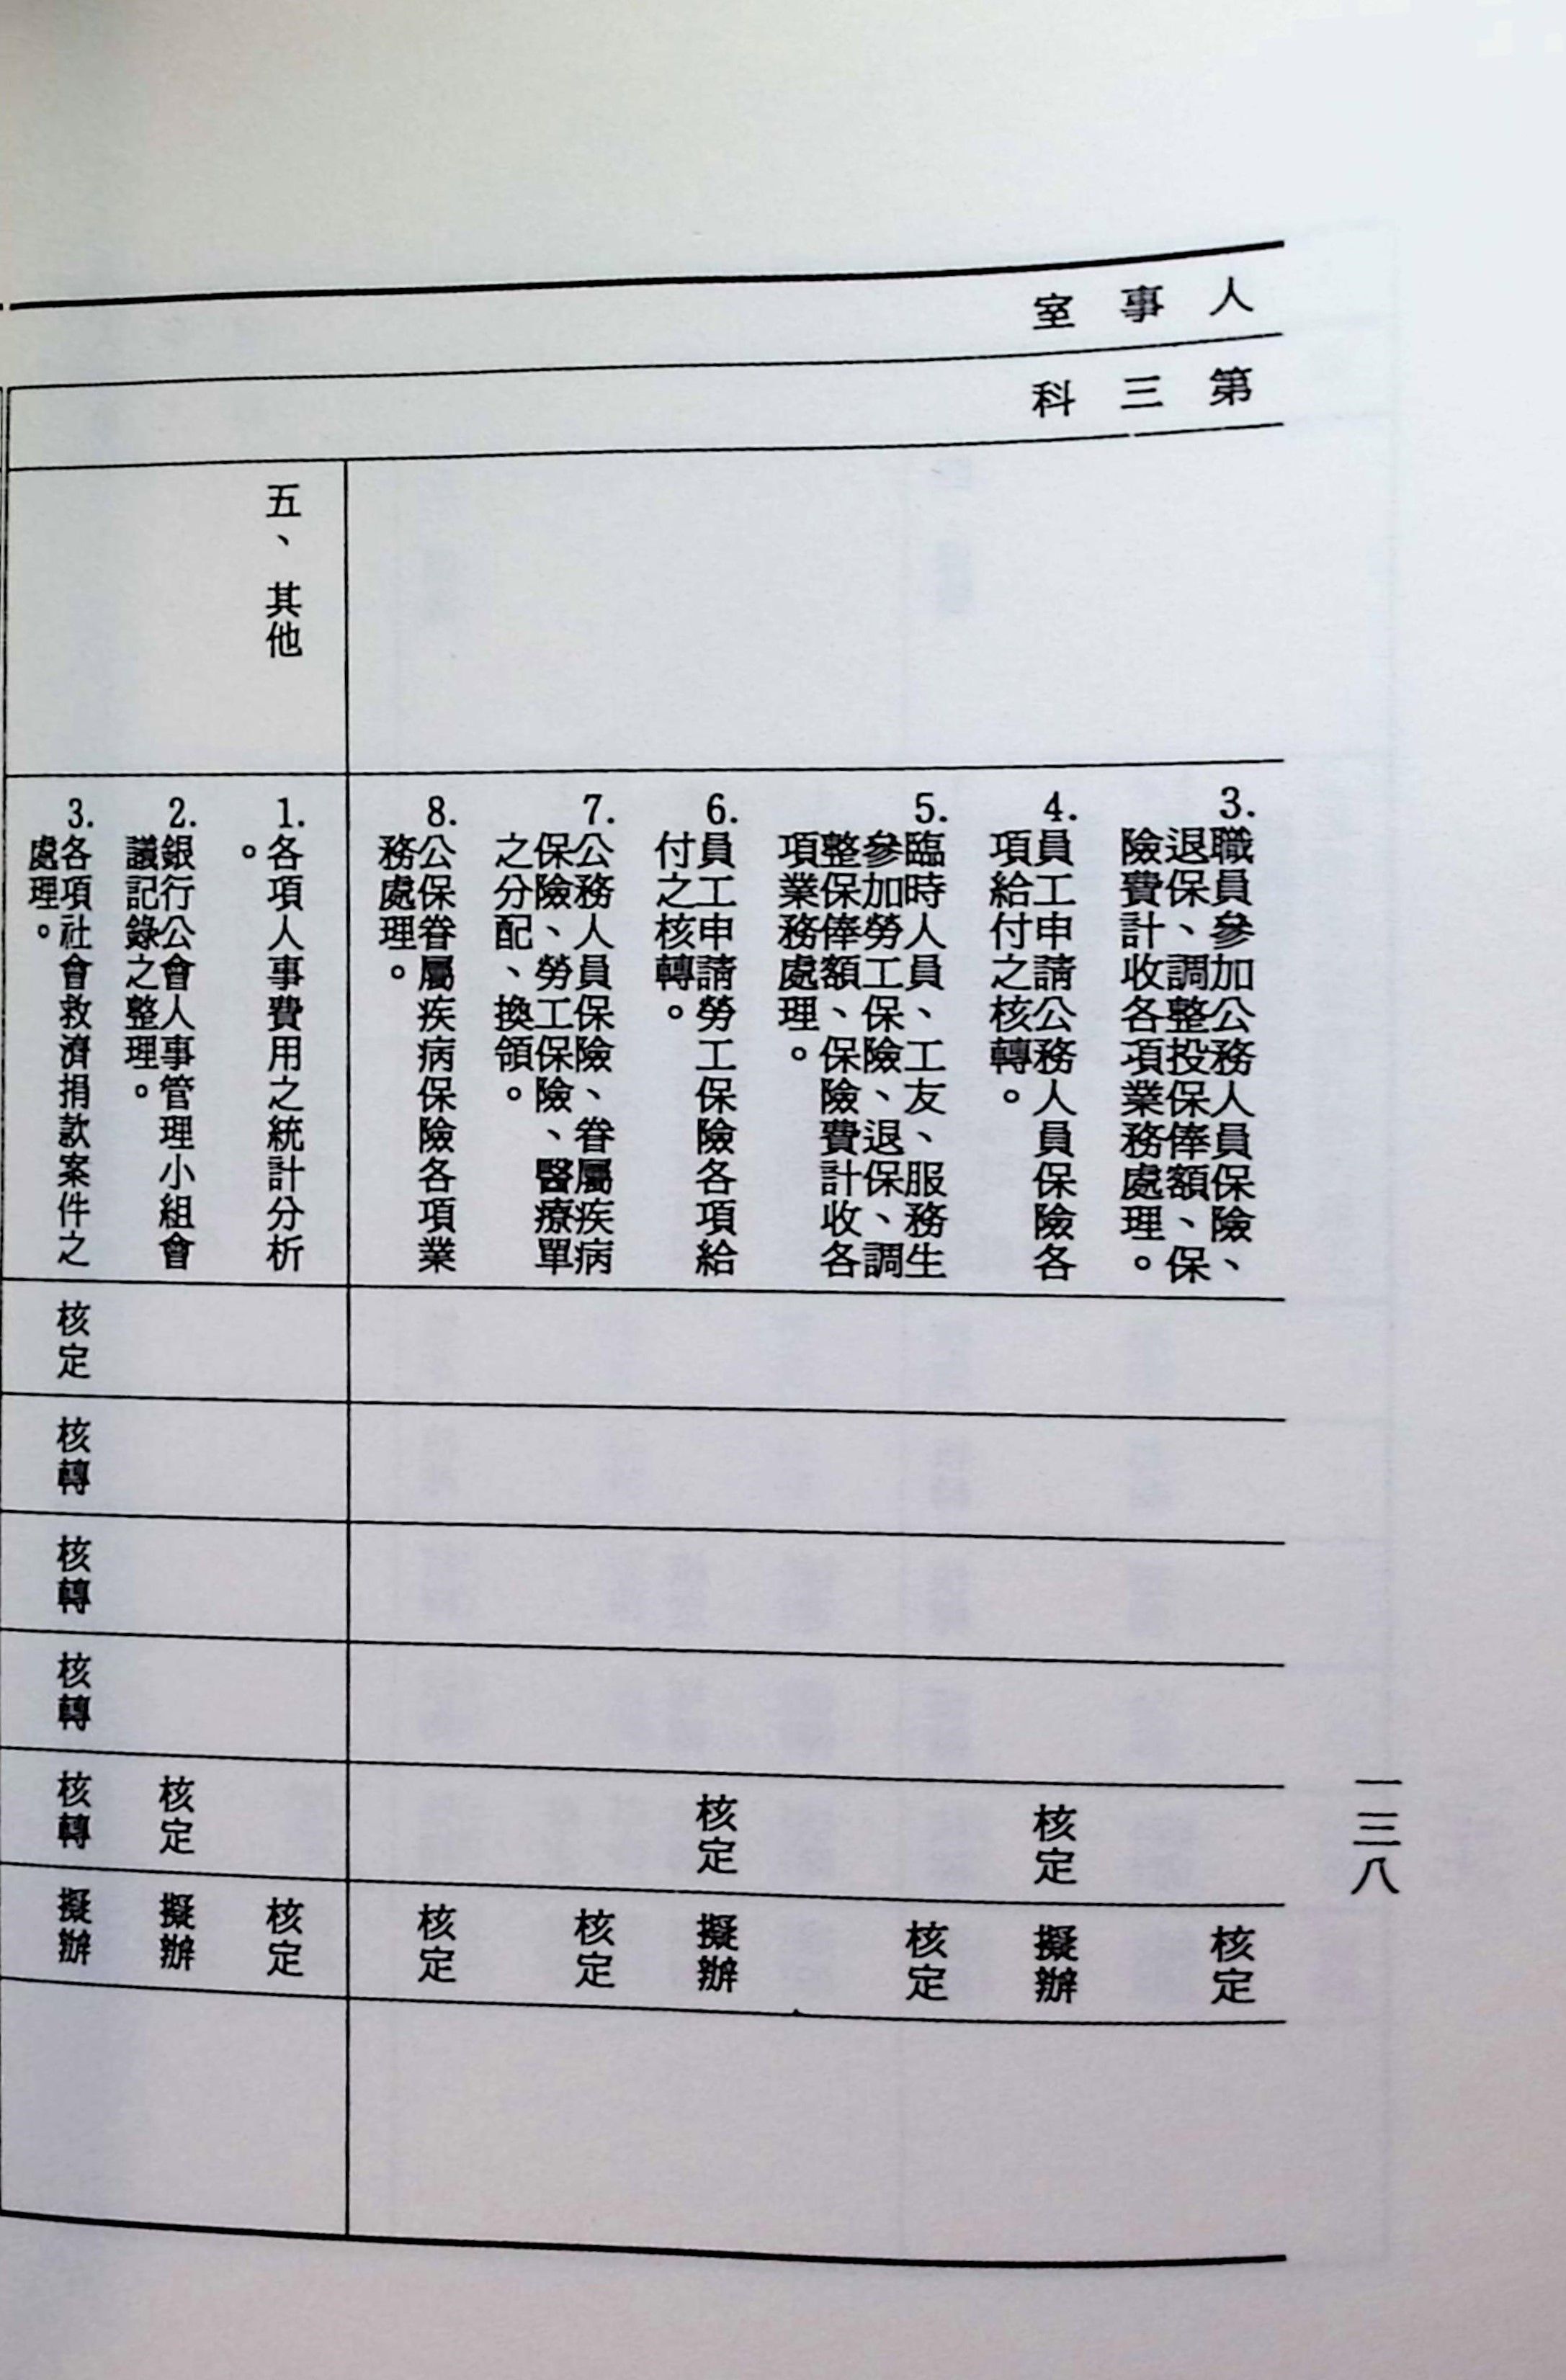 人事室
第三科
3.職員參加公務人員保險、
退保、調整投保俸額、保
險費計收各項業務處理。
核定
4.員工申請公務人員保險各
項給付之核轉。
核定
擬辦
5.臨時人員、工友、服務生
參加勞工保險、退保、調
整保俸額、保險費計收各
項業務處理。
核定
6.員工申請勞工保險各項給
付之核轉。
核定
擬辦
7.公務人員保險、眷屬疾病
保險、勞工保險、醫療單
之分配、換領。
核定
8.公保眷屬疾病保險各項業
務處理。
核定
五、其他
1.各項人事費用之統計分析
。
核定
2.銀行公會人事管理小組會
議記錄之整理。
核定
擬辦
3.各項社會救濟捐款案件之
處理。
核定
核轉
核轉
核轉
核轉
擬辦
一三八